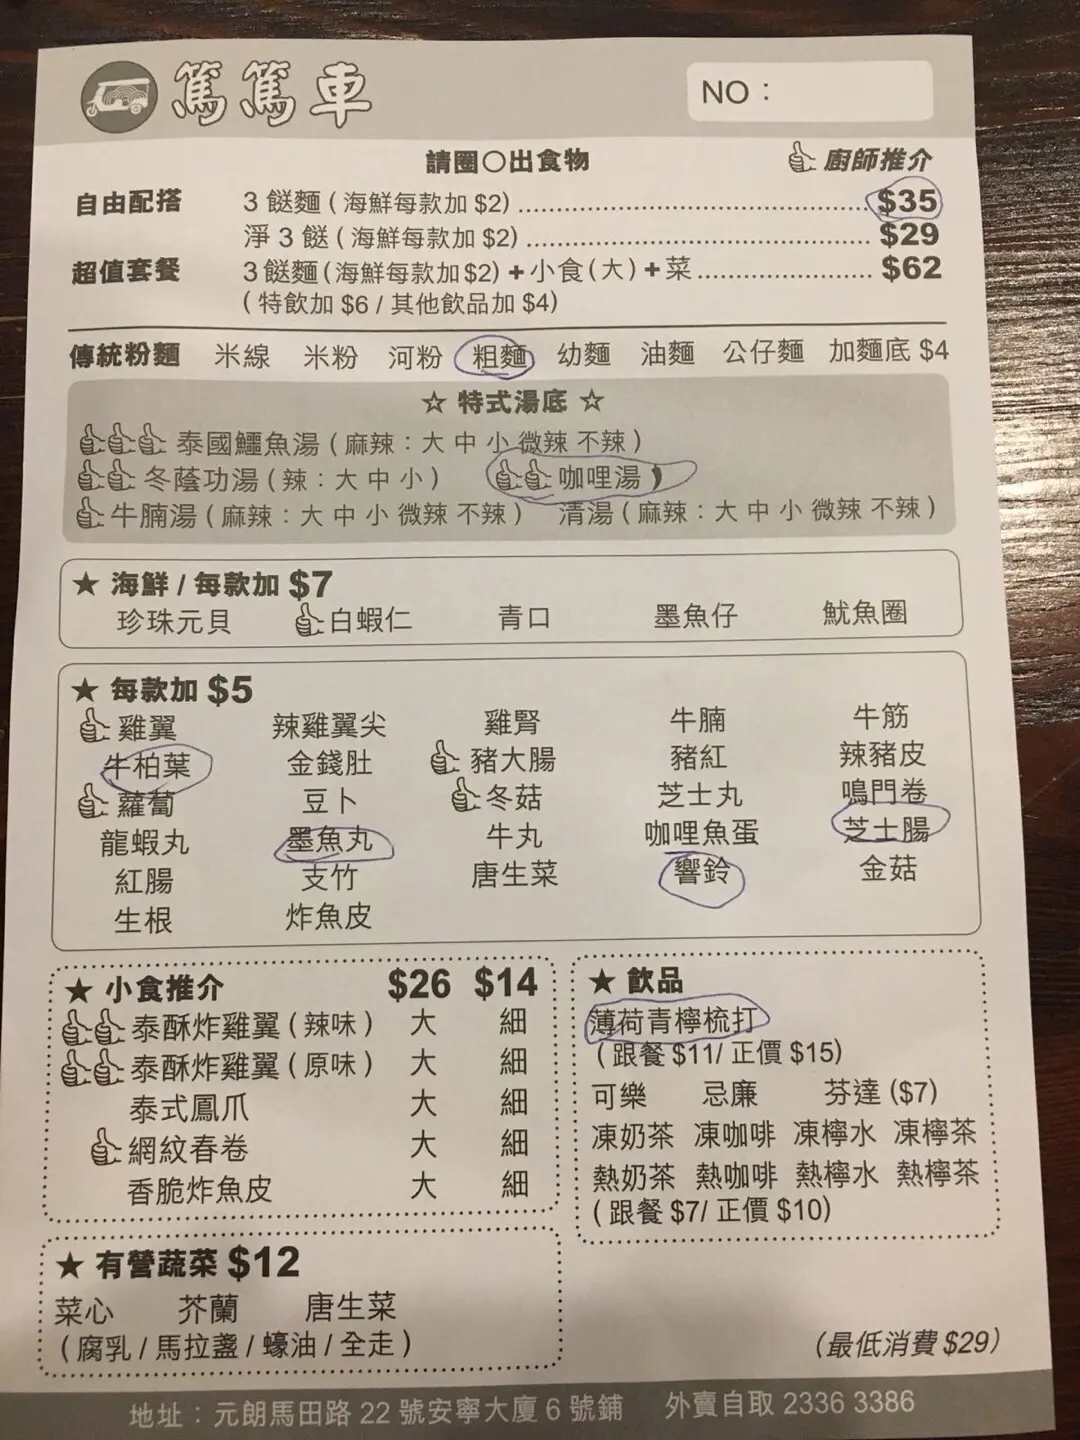 篤篤車
NO：
請圈○出食物 廚師推介
自由配搭 3餸麵(海鮮每款加$2) $35
淨3餸(海鮮每款加$2) $29
超值套餐 3餸麵(海鮮每款加$2)+小食(大)+菜 $62
(特飲加$6/其他飲品加$4)
傳統粉麵 米線 米粉 河粉 粗麵 幼麵 油麵 公仔麵 加麵底 $4
☆ 特式湯底 ☆
泰國鱷魚湯(麻辣：大 中 小 微辣 不辣)
冬蔭功湯(辣：大 中 小) 咖哩湯
牛腩湯(麻辣：大 中 小 微辣 不辣) 清湯(麻辣：大 中 小 微辣 不辣)
★ 海鮮/每款加 $7
珍珠元貝 白蝦仁 青口 墨魚仔 魷魚圈
★ 每款加 $5
雞翼 辣雞翼尖 雞腎 牛腩 牛筋
牛柏葉 金錢肚 豬大腸 豬紅 辣豬皮
蘿蔔 豆卜 冬菇 芝士丸 鳴門卷
龍蝦丸 墨魚丸 牛丸 咖哩魚蛋 芝士腸
紅腸 支竹 唐生菜 響鈴 金菇
生根 炸魚皮
★ 小食推介 $26 $14
泰酥炸雞翼(辣味) 大 細
泰酥炸雞翼(原味) 大 細
泰式鳳爪 大 細
網紋春卷 大 細
香脆炸魚皮 大 細
★ 飲品
薄荷青檸梳打
(跟餐 $11/ 正價 $15)
可樂 忌廉 芬達 ($7)
凍奶茶 凍咖啡 凍檸水 凍檸茶
熱奶茶 熱咖啡 熱檸水 熱檸茶
(跟餐 $7/ 正價 $10)
★ 有營蔬菜 $12
菜心 芥蘭 唐生菜
(腐乳/馬拉盞/蠔油/全走)
(最低消費 $29)
地址：元朗馬田路 22 號安寧大廈 6 號鋪 外賣自取 2336 3386